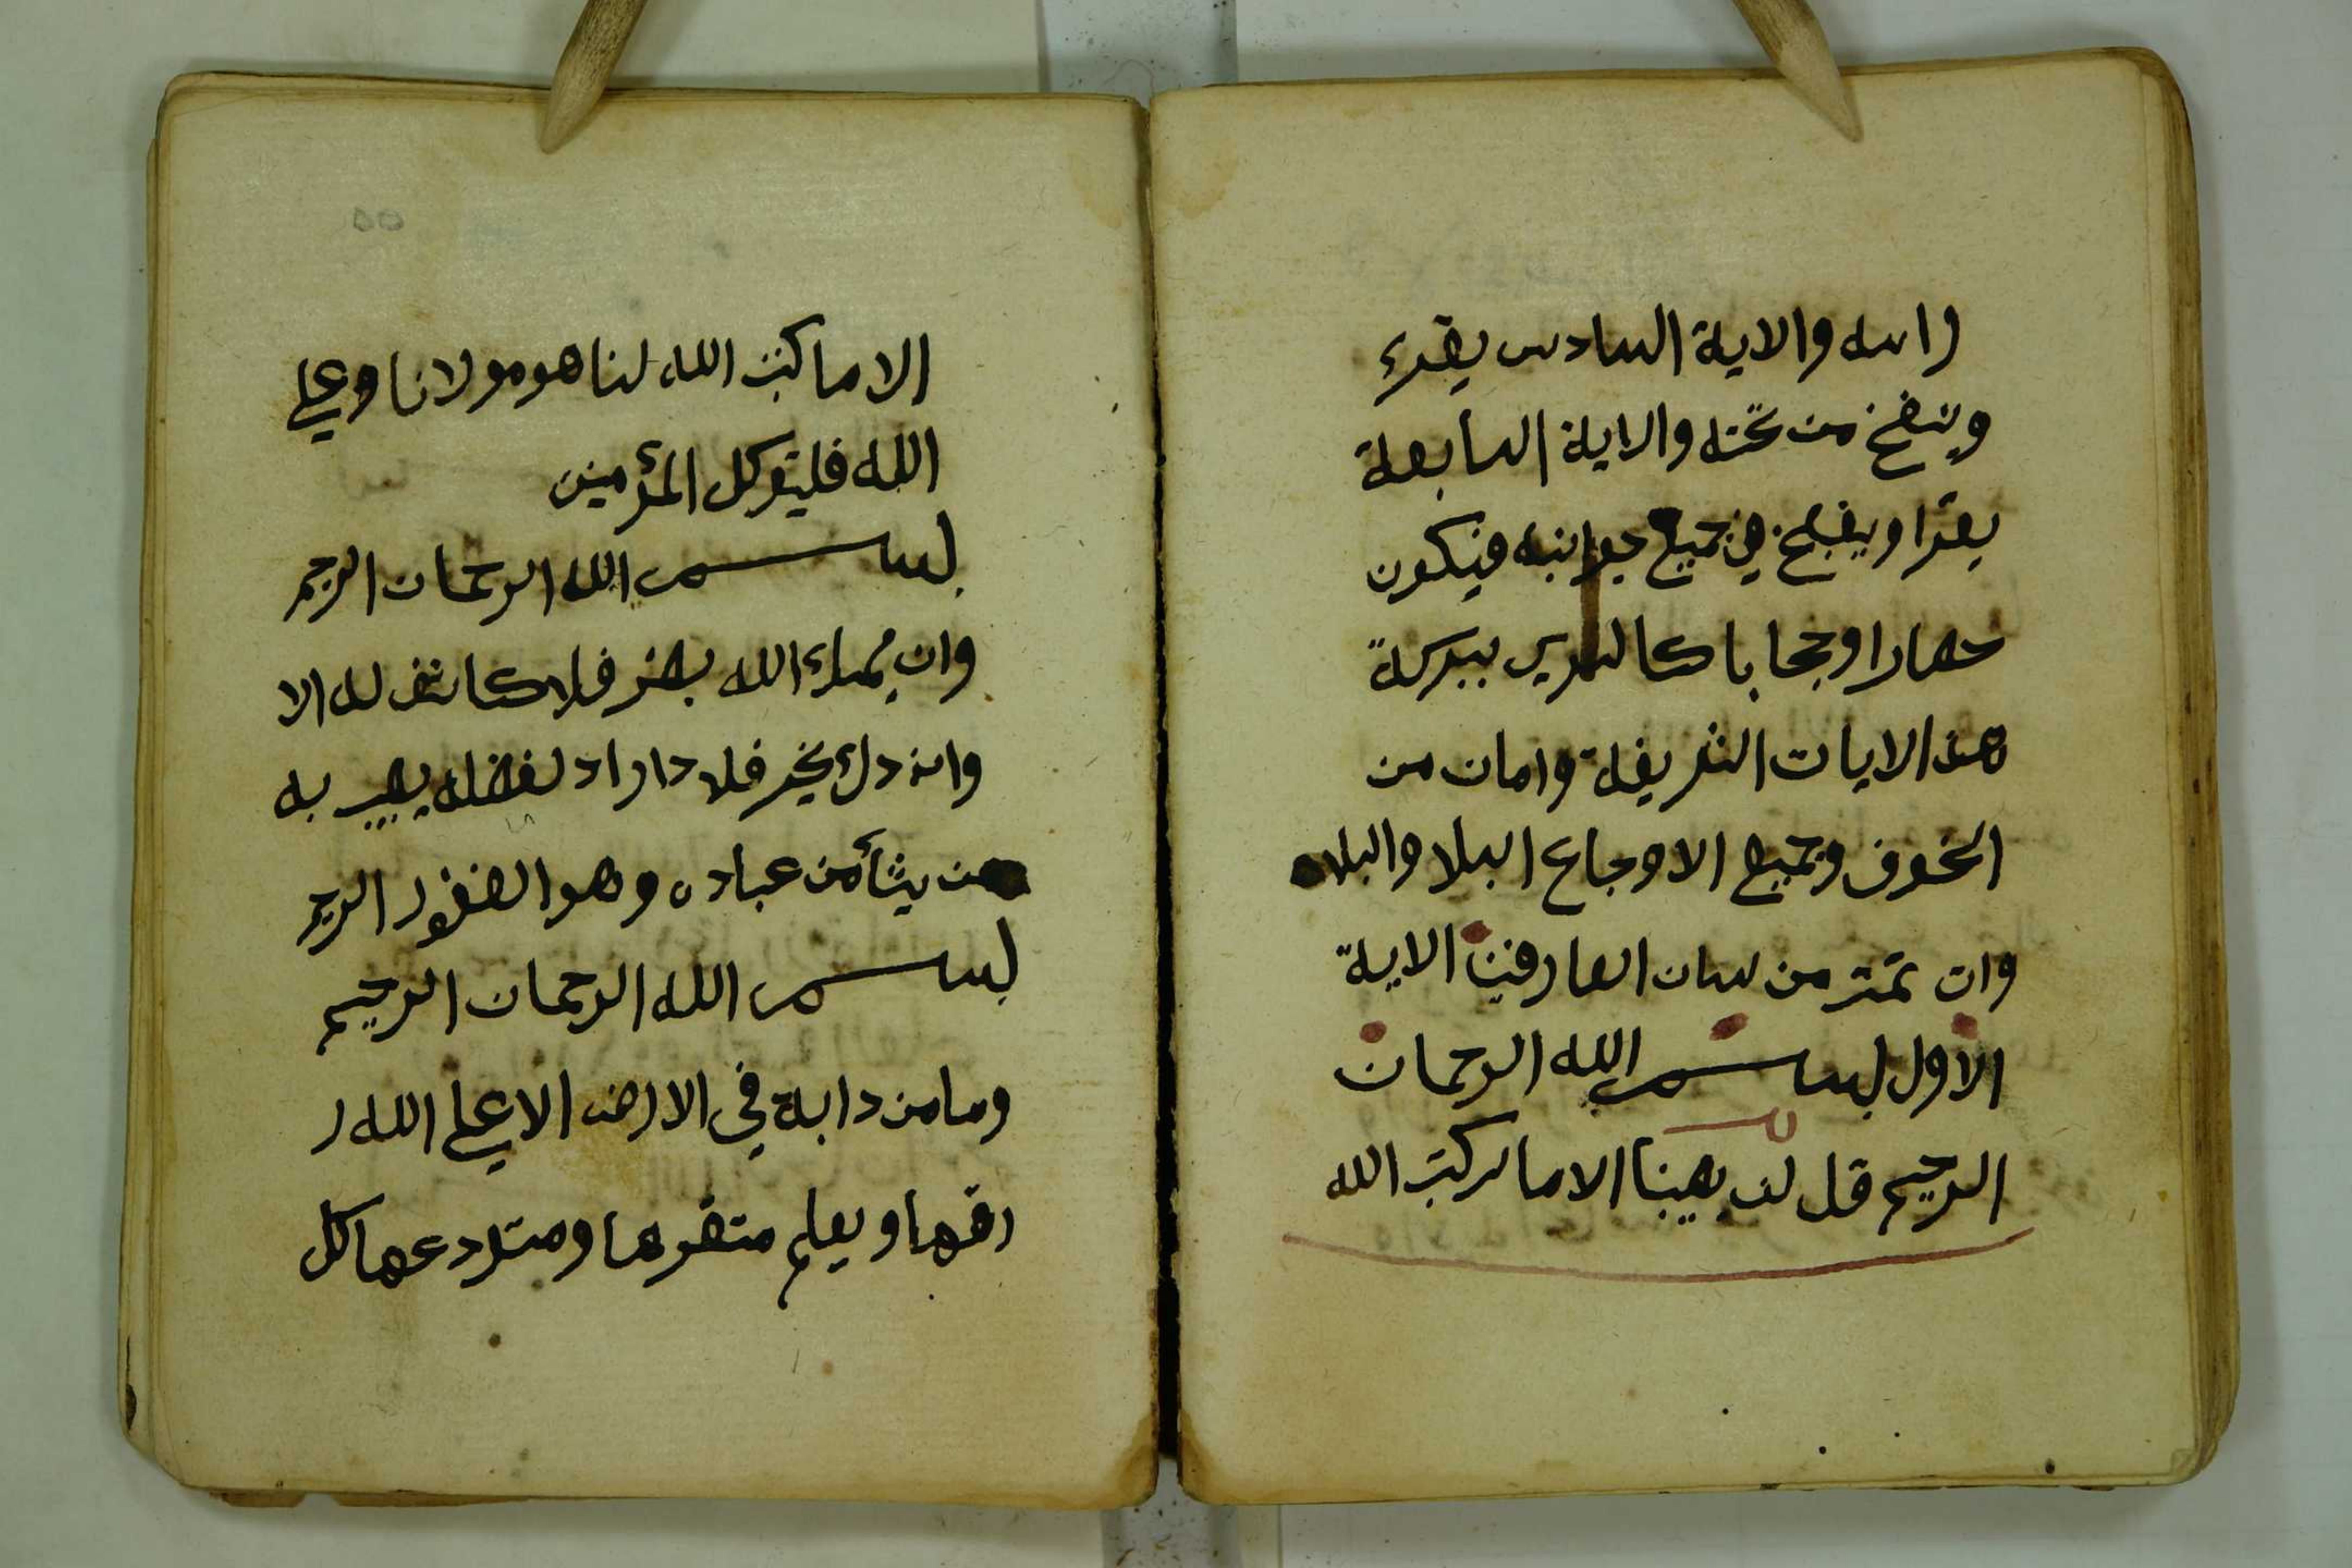 راسه والاية السادس يقرء
وينفخ من تحته والاية السابعة
يقرا وينفخ في جميع جوانبه فيكون
حصارا وحجابا كالمدين ببركة
هذ الايات الشريفة وامان من
الخوف وجميع الاوجاع البلا والبلاه
وان تمتر من لسان العارفين الاية
الاول بسم الله الرحمان
الرحيم قل لن يصيبنا الا ما كتب الله
الا ما كتب الله لنا هو مولانا وعلى
الله فليتوكل المؤمنين
بسم الله الرحمان الرحيم
وان يمساء الله بضر فلا كاشف له الا
وان دك بخير فلا داراد لفضله يصيب به
من يشأ من عباده وهو الغفور الرحيم
بسم الله الرحمان الرحيم
وما من دابة في الارض الا على الله ر
زقها ويعلم متقرها ومتودعها كل